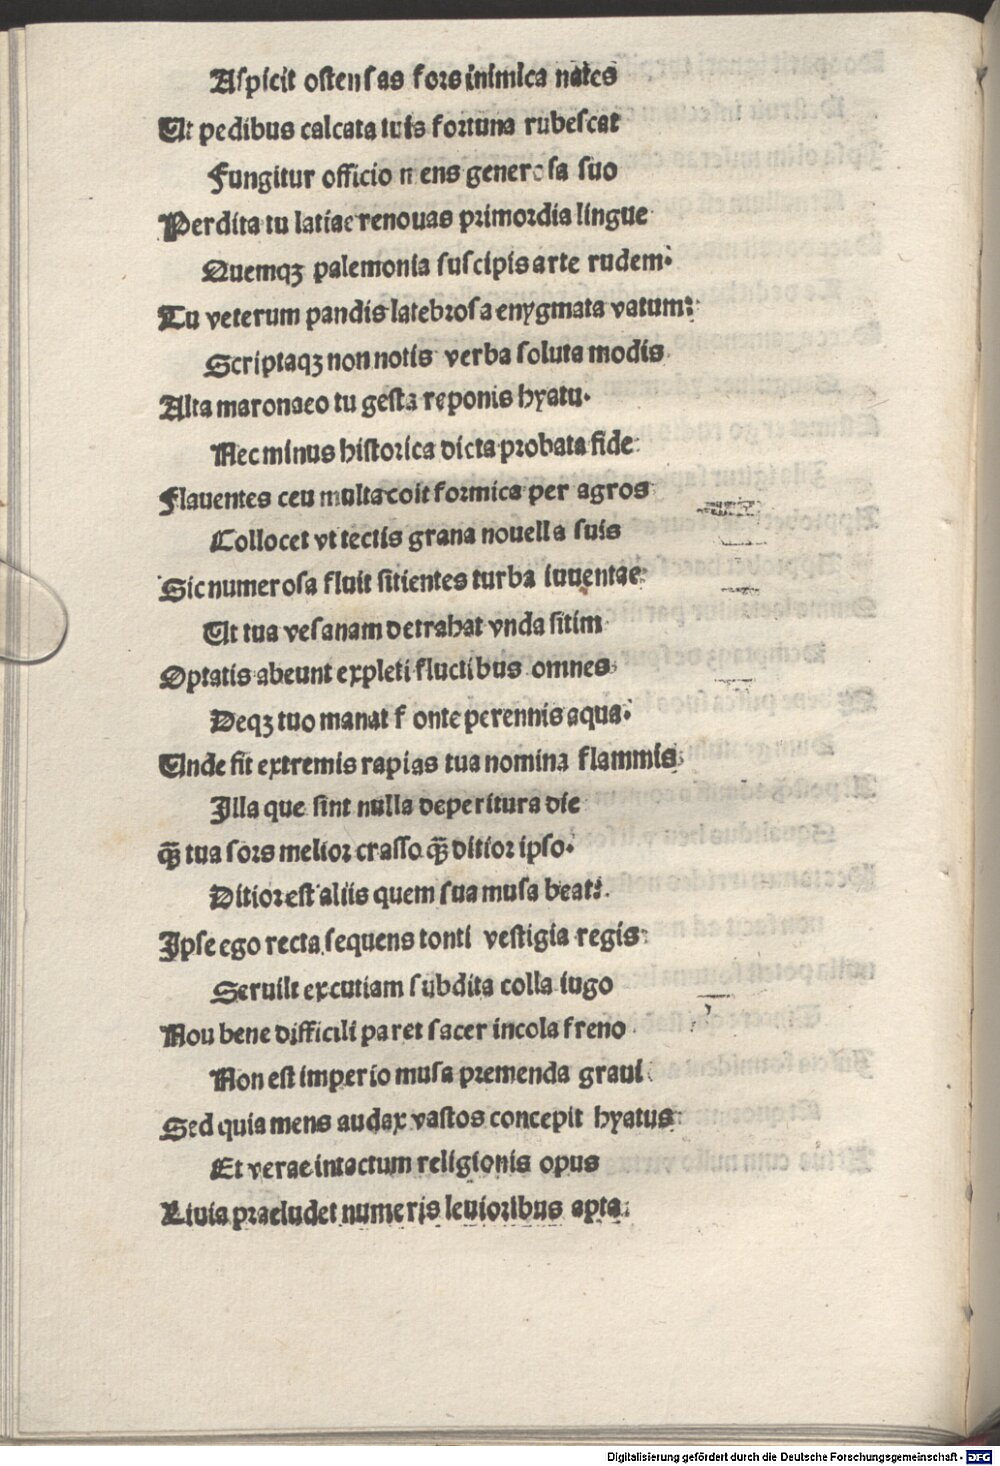 Aspicit ostensas fors inimica nates
Ut pedibus calcata tuis fortuna rubescat
Fungitur officio mens generosa suo
Perdita tu latiae renouas primordia lingue
Quemqꝫ palemonia suscipis arte rudem.
Tu veterum pandis latebrosa enygmata vatum:
Scriptaqꝫ non notis verba soluta modis
Alta maronaeo tu gesta reponis hyatu.
Nec minus historica dicta probata fide
Flauentes ceu multa coit formica per agros
Collocet vt tectis grana nouella suis
Sic numerosa fluit sitientes turba iuuentae
Ut tua vesanam detrahat vnda sitim
Optatis abeunt expleti fluctibus omnes
Deqꝫ tuo manat fonte perennis aqua.
Unde fit extremis rapias tua nomina flammis
Illa que sint nulla deperitura die
qꝫ̄ tua sors melior crasso qꝫ̄ ditior ipso.
Ditior est aliis quem sua musa beat:
Ipse ego recta sequens tonti vestigia regis
Seruile excutiam subdita colla iugo
Nou bene difficili paret sacer incola freno
Non est imperio musa premenda graui
Sed quia mens audax vastos concepit hyatus
Et verae intactum religionis opus
Liuia praeludet numeris leuioribus apta
Digitalisierung gefördert durch die Deutsche Forschungsgemeinschaft - DFG